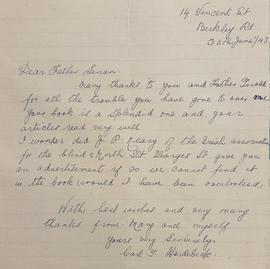 14 Vincent St
Berkley Rd
30th June/43.
Dear Father Senan.
Many thanks to you and Father Gerald
for all the trouble you have gone to over me
Your book is a splendid one and your
articles read very well
I wonder did J. P. Cleary of the Irish association
for the blind & North Gt Georges St give you
an advertisement if so we cannot find it
in the book would it have been overlooked.
With best wishes and very many
thanks from Mary and myself
Yours very Sincerely,
Carl G. Hardebeck.